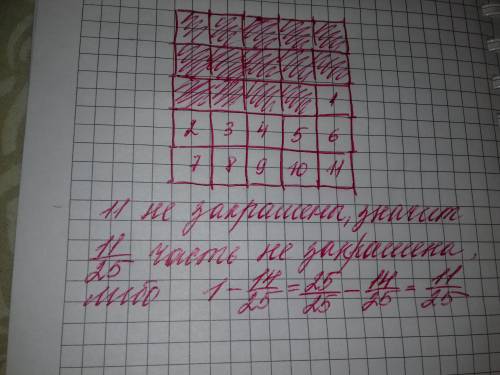 1
2 3 4 5 6
7 8 9 10 11
11 не закрашена, значит
11/25 часть не закрашена.
либо 1 - 14/25 = 25/25 - 14/25 = 11/25